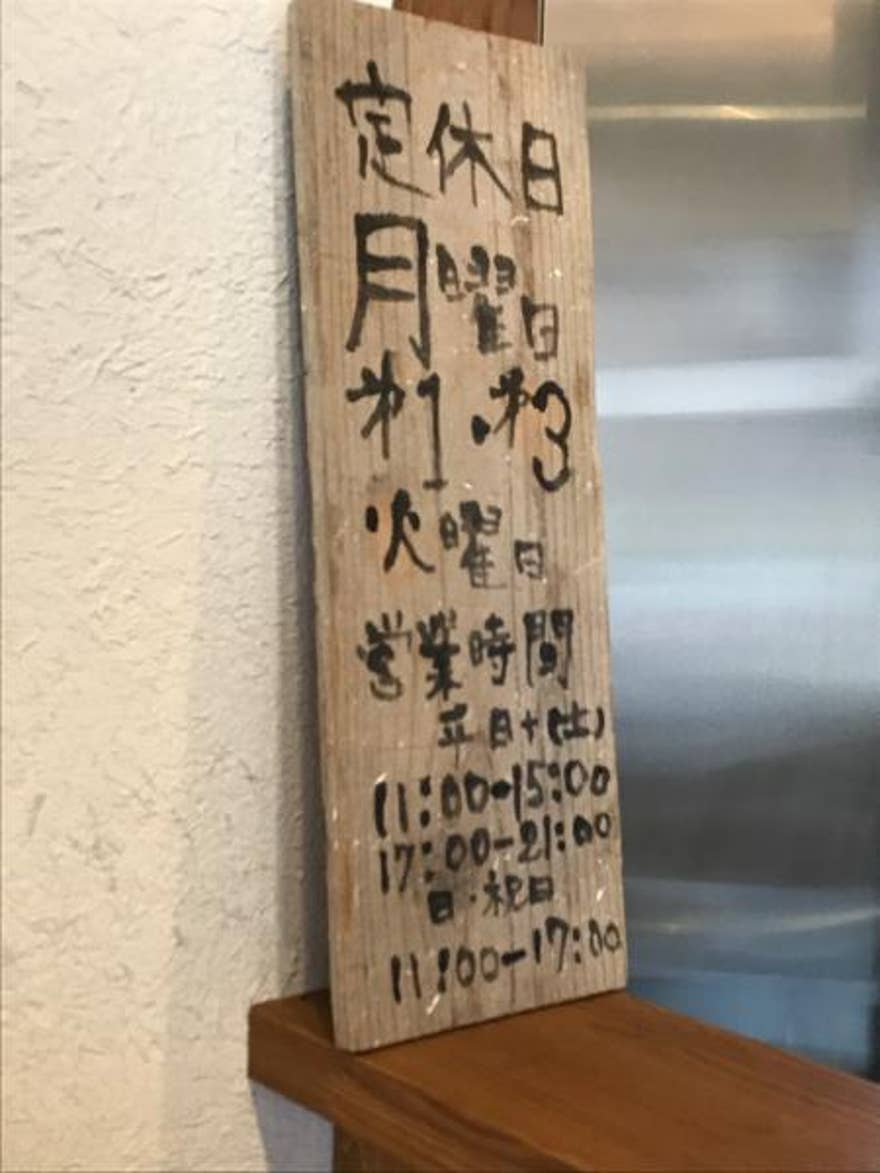 定休日
月曜日
第1・第3
火曜日
営業時間
平日+(土)
11:00-15:00
17:00-21:00
日・祝日
11:00-17:00